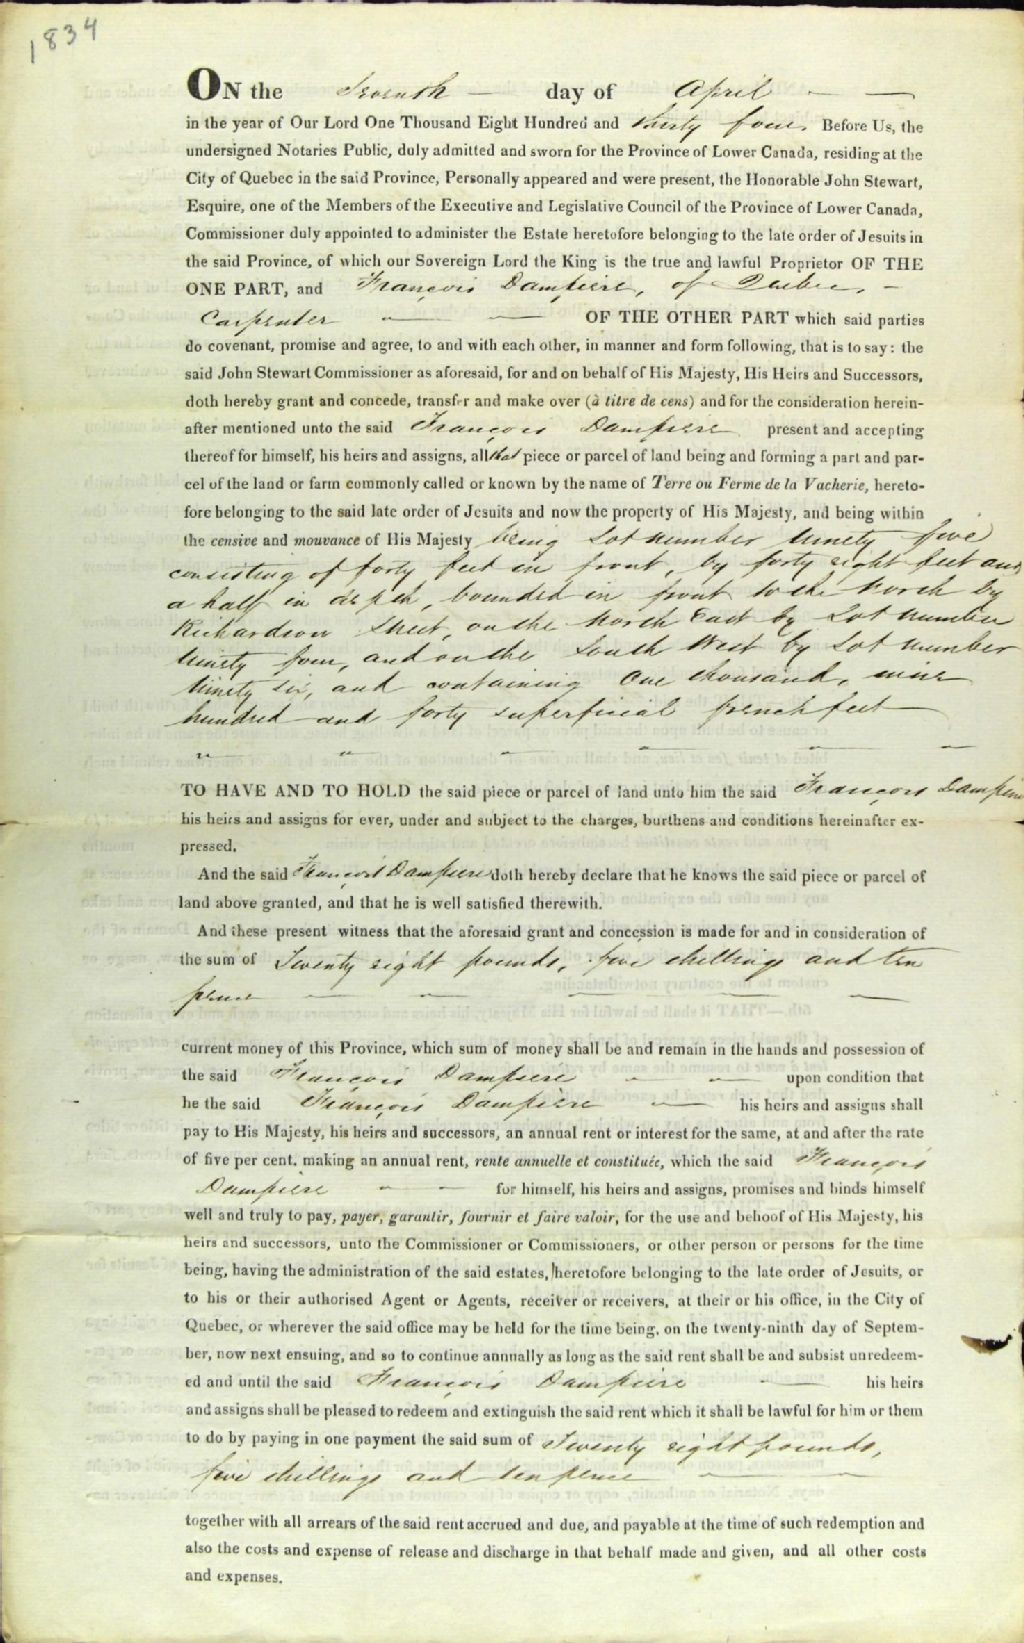 1834
ON the Seventh — day of April — —
in the year of Our Lord One Thousand Eight Hundred and thirty four Before Us, the
undersigned Notaries Public, duly admitted and sworn for the Province of Lower Canada, residing at the
City of Quebec in the said Province, Personally appeared and were present, the Honorable John Stewart,
Esquire, one of the Members of the Executive and Legislative Council of the Province of Lower Canada,
Commissioner duly appointed to administer the Estate heretofore belonging to the late order of Jesuits in
the said Province, of which our Sovereign Lord the King is the true and lawful Proprietor OF THE
ONE PART, and François Dampierre, of Quebec, —
Carpenter — — OF THE OTHER PART which said parties
do covenant, promise and agree, to and with each other, in manner and form following, that is to say: the
said John Stewart Commissioner as aforesaid, for and on behalf of His Majesty, His Heirs and Successors,
doth hereby grant and concede, transfer and make over (à titre de cens) and for the consideration herein-
after mentioned unto the said François Dampierre present and accepting
thereof for himself, his heirs and assigns, all that piece or parcel of land being and forming a part and par-
cel of the land or farm commonly called or known by the name of Terre ou Ferme de la Vacherie, hereto-
fore belonging to the said late order of Jesuits and now the property of His Majesty, and being within
the censive and mouvance of His Majesty being Lot number ninety five
consisting of forty feet in front, by forty eight feet and
a half in depth, bounded in front to the North by
Richardson Street, on the North East by Lot number
ninety four, and on the South West by Lot number
ninety six, and containing One thousand, nine
hundred and forty superficial french feet —
" " — — — —
TO HAVE AND TO HOLD the said piece or parcel of land unto him the said François Dampierre
his heirs and assigns for ever, under and subject to the charges, burthens and conditions hereinafter ex-
pressed.
And the said François Dampierre doth hereby declare that he knows the said piece or parcel of
land above granted, and that he is well satisfied therewith.
And these present witness that the aforesaid grant and concession is made for and in consideration of
the sum of Twenty eight pounds, five shillings and ten
pence — — — — —
current money of this Province, which sum of money shall be and remain in the hands and possession of
the said François Dampierre — — upon condition that
he the said François Dampierre — his heirs and assigns shall
pay to His Majesty, his heirs and successors, an annual rent or interest for the same, at and after the rate
of five per cent. making an annual rent, rente annuelle et constituée, which the said François
Dampierre — — for himself, his heirs and assigns, promises and binds himself
well and truly to pay, payer, garantir, fournir et faire valoir, for the use and behoof of His Majesty, his
heirs and successors, unto the Commissioner or Commissioners, or other person or persons for the time
being, having the administration of the said estates, heretofore belonging to the late order of Jesuits, or
to his or their authorised Agent or Agents, receiver or receivers, at their or his office, in the City of
Quebec, or wherever the said office may be held for the time being, on the twenty-ninth day of Septem-
ber, now next ensuing, and so to continue annually as long as the said rent shall be and subsist unredeem-
ed and until the said François Dampierre — his heirs
and assigns shall be pleased to redeem and extinguish the said rent which it shall be lawful for him or them
to do by paying in one payment the said sum of Twenty eight pounds,
five shillings and ten pence — —
together with all arrears of the said rent accrued and due, and payable at the time of such redemption and
also the costs and expense of release and discharge in that behalf made and given, and all other costs
and expenses.